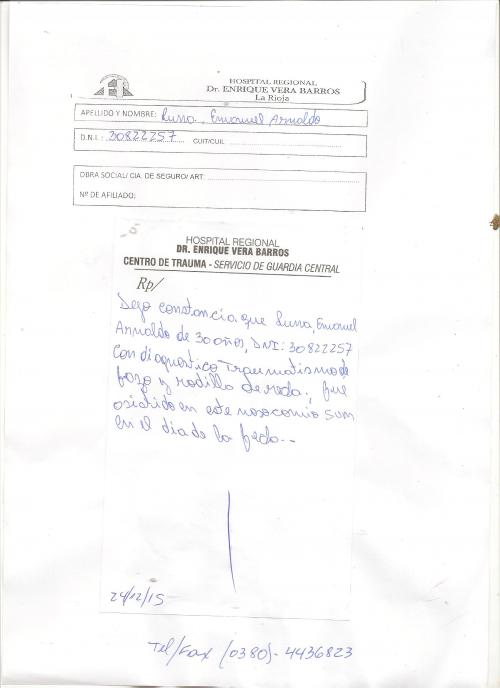 HOSPITAL REGIONAL
Dr. ENRIQUE VERA BARROS
La Rioja
APELLIDO Y NOMBRE: Luna, Emanuel Arnaldo
D.N.I.: 30822257 CUIT/CUIL:
OBRA SOCIAL/ CIA. DE SEGURO/ ART:
Nº DE AFILIADO:
HOSPITAL REGIONAL
DR. ENRIQUE VERA BARROS
CENTRO DE TRAUMA - SERVICIO DE GUARDIA CENTRAL
Rp/
Dejo constancia que Luna, Emanuel
Arnaldo de 30 años, DNI: 30822257
con diagnostico Traumatismo de
y rodilla derecha, fue
asistido en este nosocomio
en el dia de la fecha.--
24/12/15
Tel/Fax (0380)- 4436823